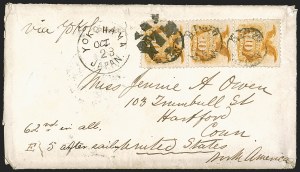 via Yokoh
YOKOHAMA
OCT
23
JAPAN
10
Miss Jennie A Owen
103 Trumbull St
Hartford
Conn
62nd in all.
5 after early
United States
North America